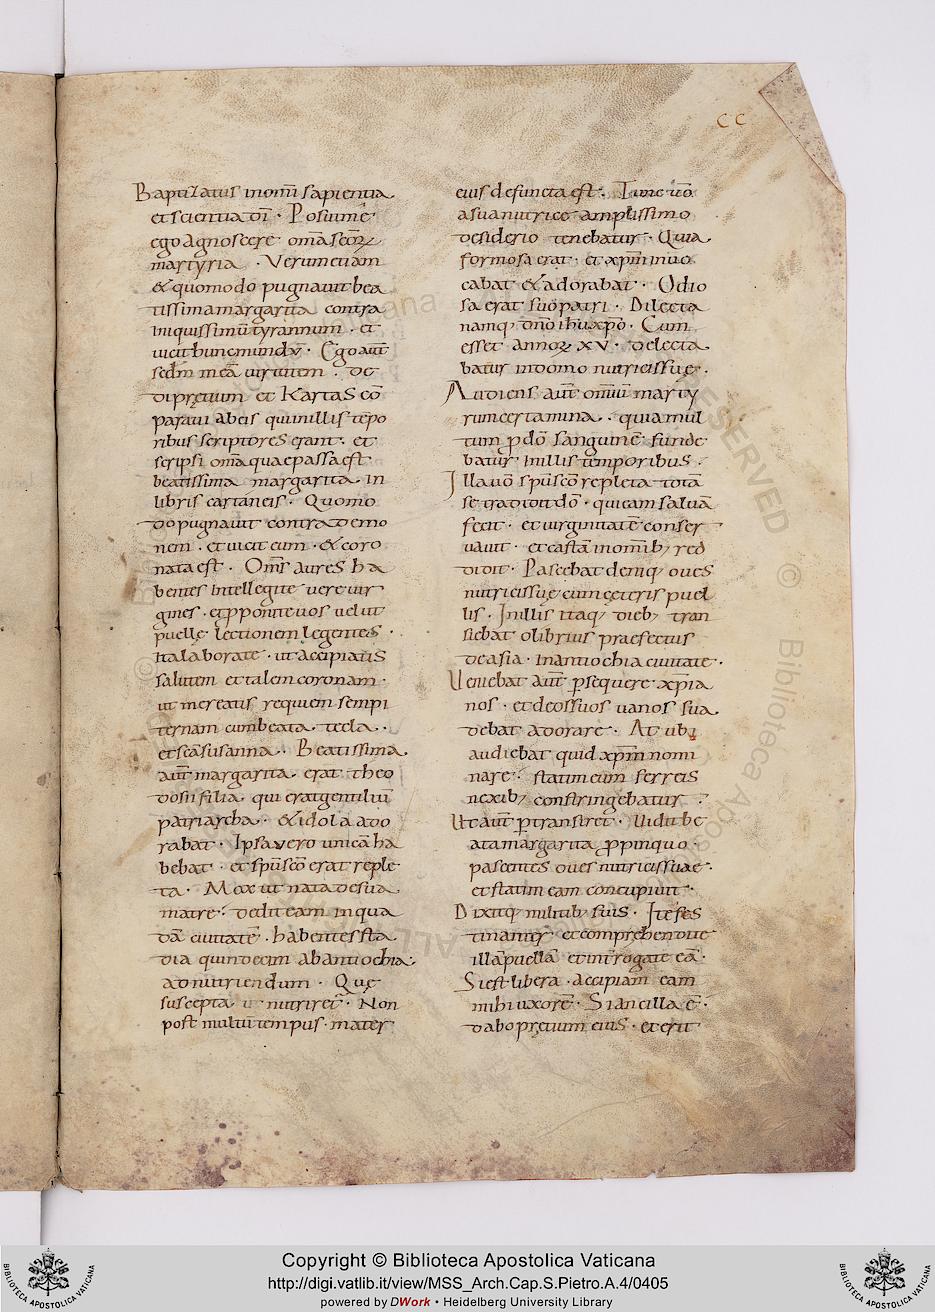 C C
Baptizatus inomi sapientia
etscientia di · Posui me
ego agnoscere · oma scoꝝ
martyria · Verumetiam
&quomodo pugnauit bea
tissima margarita contra
iniquissimū tyrannum · et
uicit hunc mundū · Ego aut̄
sedm meā uirtutem · de
di pretium et Kartas eō
paraui abeis qui inillis tēpo
ribus scriptores erant · et
scripsi oma quae passa est
beatissima margarita in
libris cartaneis · Quomo
do pugnauit contra demo
nem · et uicit eum · &coro
nata est · Oms aures ha
bentes intellegite uere uir
gines · et pponite uos uelut
puellę lectionem legentes ·
Ita laborate · ut accipiatis
salutem et talem coronam ·
ut mereatis requiem sempi
ternam cum beata tecla ·
et sca susanna · Beatissima
aut̄ margarita erat theo
dosii filia · qui erat gentiliū
patriarcha · &idola ado
rabat · Ipsa vero unica ha
bebat · et spūscō erat reple
ta · Mox ut nata de sua
matre · dedit eam in qua
dā ciuitatē · habentes sta
dia quindecim ab antiochia ·
ad nutriendum · Quę
suscepta ut nutriret · Non
post multū tempus · mater
eius defuncta est · Tunc uō
a sua nutrice amplissimo
desiderio tenebatur · Quia
formosa erat · et xpm inuo
cabat &adorabat · Odio
sa erat suo patri · Dilecta
namq; dno ihu xpo · Cum
esset annoꝝ XV · delecta
batur in domo nutricis suę ·
Audiens aut̄ omiū marty
rum certamina · quia mul
tum p dō sanguinē funde
batur inillis temporibus ·
Illa uō spūscō repleta totā
se tradidit dō · qui eam saluā
fecit · et uirginitatē conser
uauit · et castā in omib; red
didit · Pascebat deniq; oues
nutricis suę cum ceteris puel
lis · Inillis itaq; dieb; tran
siebat olibrius praefectus
de asia · in antiochia ciuitate ·
Ueniebat aut̄ psequere xpia
nos · et deos suos uanos sua
debat adorare · At ubi
audiebat quid xpm nomi
nare · statim eum ferreis
nexib; constringebatur ·
Ut aut̄ ptransiret · Uidit be
ata margarita ppinquo ·
pascentes oues nutricis suae ·
et statim eam concupiuit ·
Dixitq; militib; suis · Ite fes
tinanter et comprehendite
illā puellā et int̄rogate eā ·
Si est libera · accipiam eam
mihi uxorē · Si ancilla ē ·
dabo pretium eius · et erit
Copyright © Biblioteca Apostolica Vaticana
http://digi.vatlib.it/view/MSS_Arch.Cap.S.Pietro.A.4/0405
powered by DWork • Heidelberg University Library